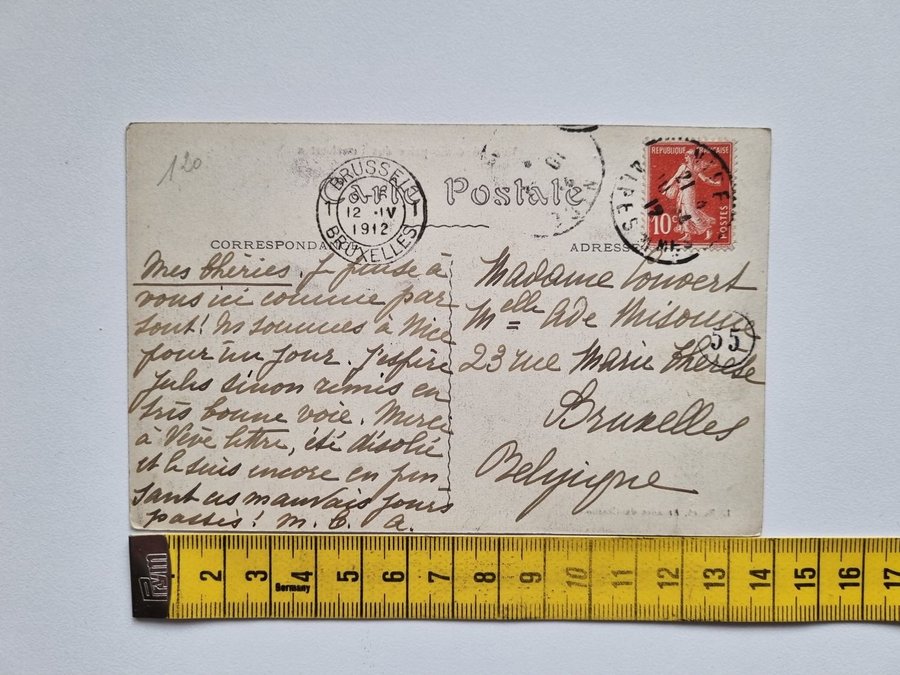 120
Carte Postale
BRUSSEL
12 IV
1912
BRUXELLES
REPUBLIQUE FRANÇAISE
10c
POSTES
NICE
ALPES
CORRESPONDANCE
ADRESSE
Mes chéries. Je pense à
vous ici comme par
tout! Ns sommes à Nice
pour un jour. J'espère
Jules sinon remis en
très bonne voie. Merci
à Vève lettre, été désolée
et le suis encore en pen
sant ces mauvais jours
passés! M. C. A.
Madame Convert
Melle Ade
23 rue Marie Thérèse
Bruxelles
Belgique
55
prym
2 3 4 5 6 7 8 9 10 11 12 13 14 15 16 17
Germany